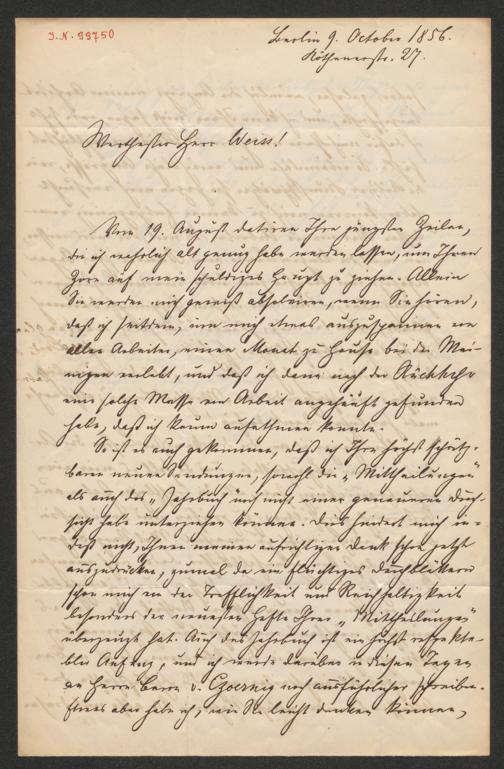 I.N. 99750
Berlin 9. October 1856.
Köthenerstr. 27.
Werthester Herr Weiss!
Vom 19. August datiren Ihre jüngsten Zeilen,
die ich wahrlich alt genug habe werden lassen, um Ihren
Zorn auf mein schuldiges Haupt zu ziehen. Allein
Sie werden mich gewiß absolviren, wenn Sie hören,
daß ich seitdem, um mich etwas auszuspannen von
aller Arbeit, einen Monat zu Hause bei den Mei-
nigen verlebt, und daß ich dann nach der Rückkehr
eine solche Masse von Arbeit angehäuft gefunden
habe, daß ich kaum aufathmen konnte.
So ist es auch gekommen, daß ich Ihre höchst schätz-
baren neuen Sendungen, sowohl die „Mittheilungen"
als auch das „Jahrbuch" noch nicht einer genaueren Durch-
sicht habe unterziehen können. Dies hindert mich in-
deß nicht, Ihnen meinen aufrichtigen Dank schon jetzt
auszudrücken, zumal da ein flüchtiges Durchblättern
schon mich von der Trefflichkeit und Reichhaltigkeit
besonders der neuesten Hefte Ihrer „Mittheilungen"
überzeugt hat. Auch das Jahrbuch ist ein höchst respekta-
bler Anfang, und ich werde darüber in diesen Tagen
an Herrn Baron v. Czoernig noch ausführlicher schreiben.
Eines aber habe ich, wie Sie leicht denken können,